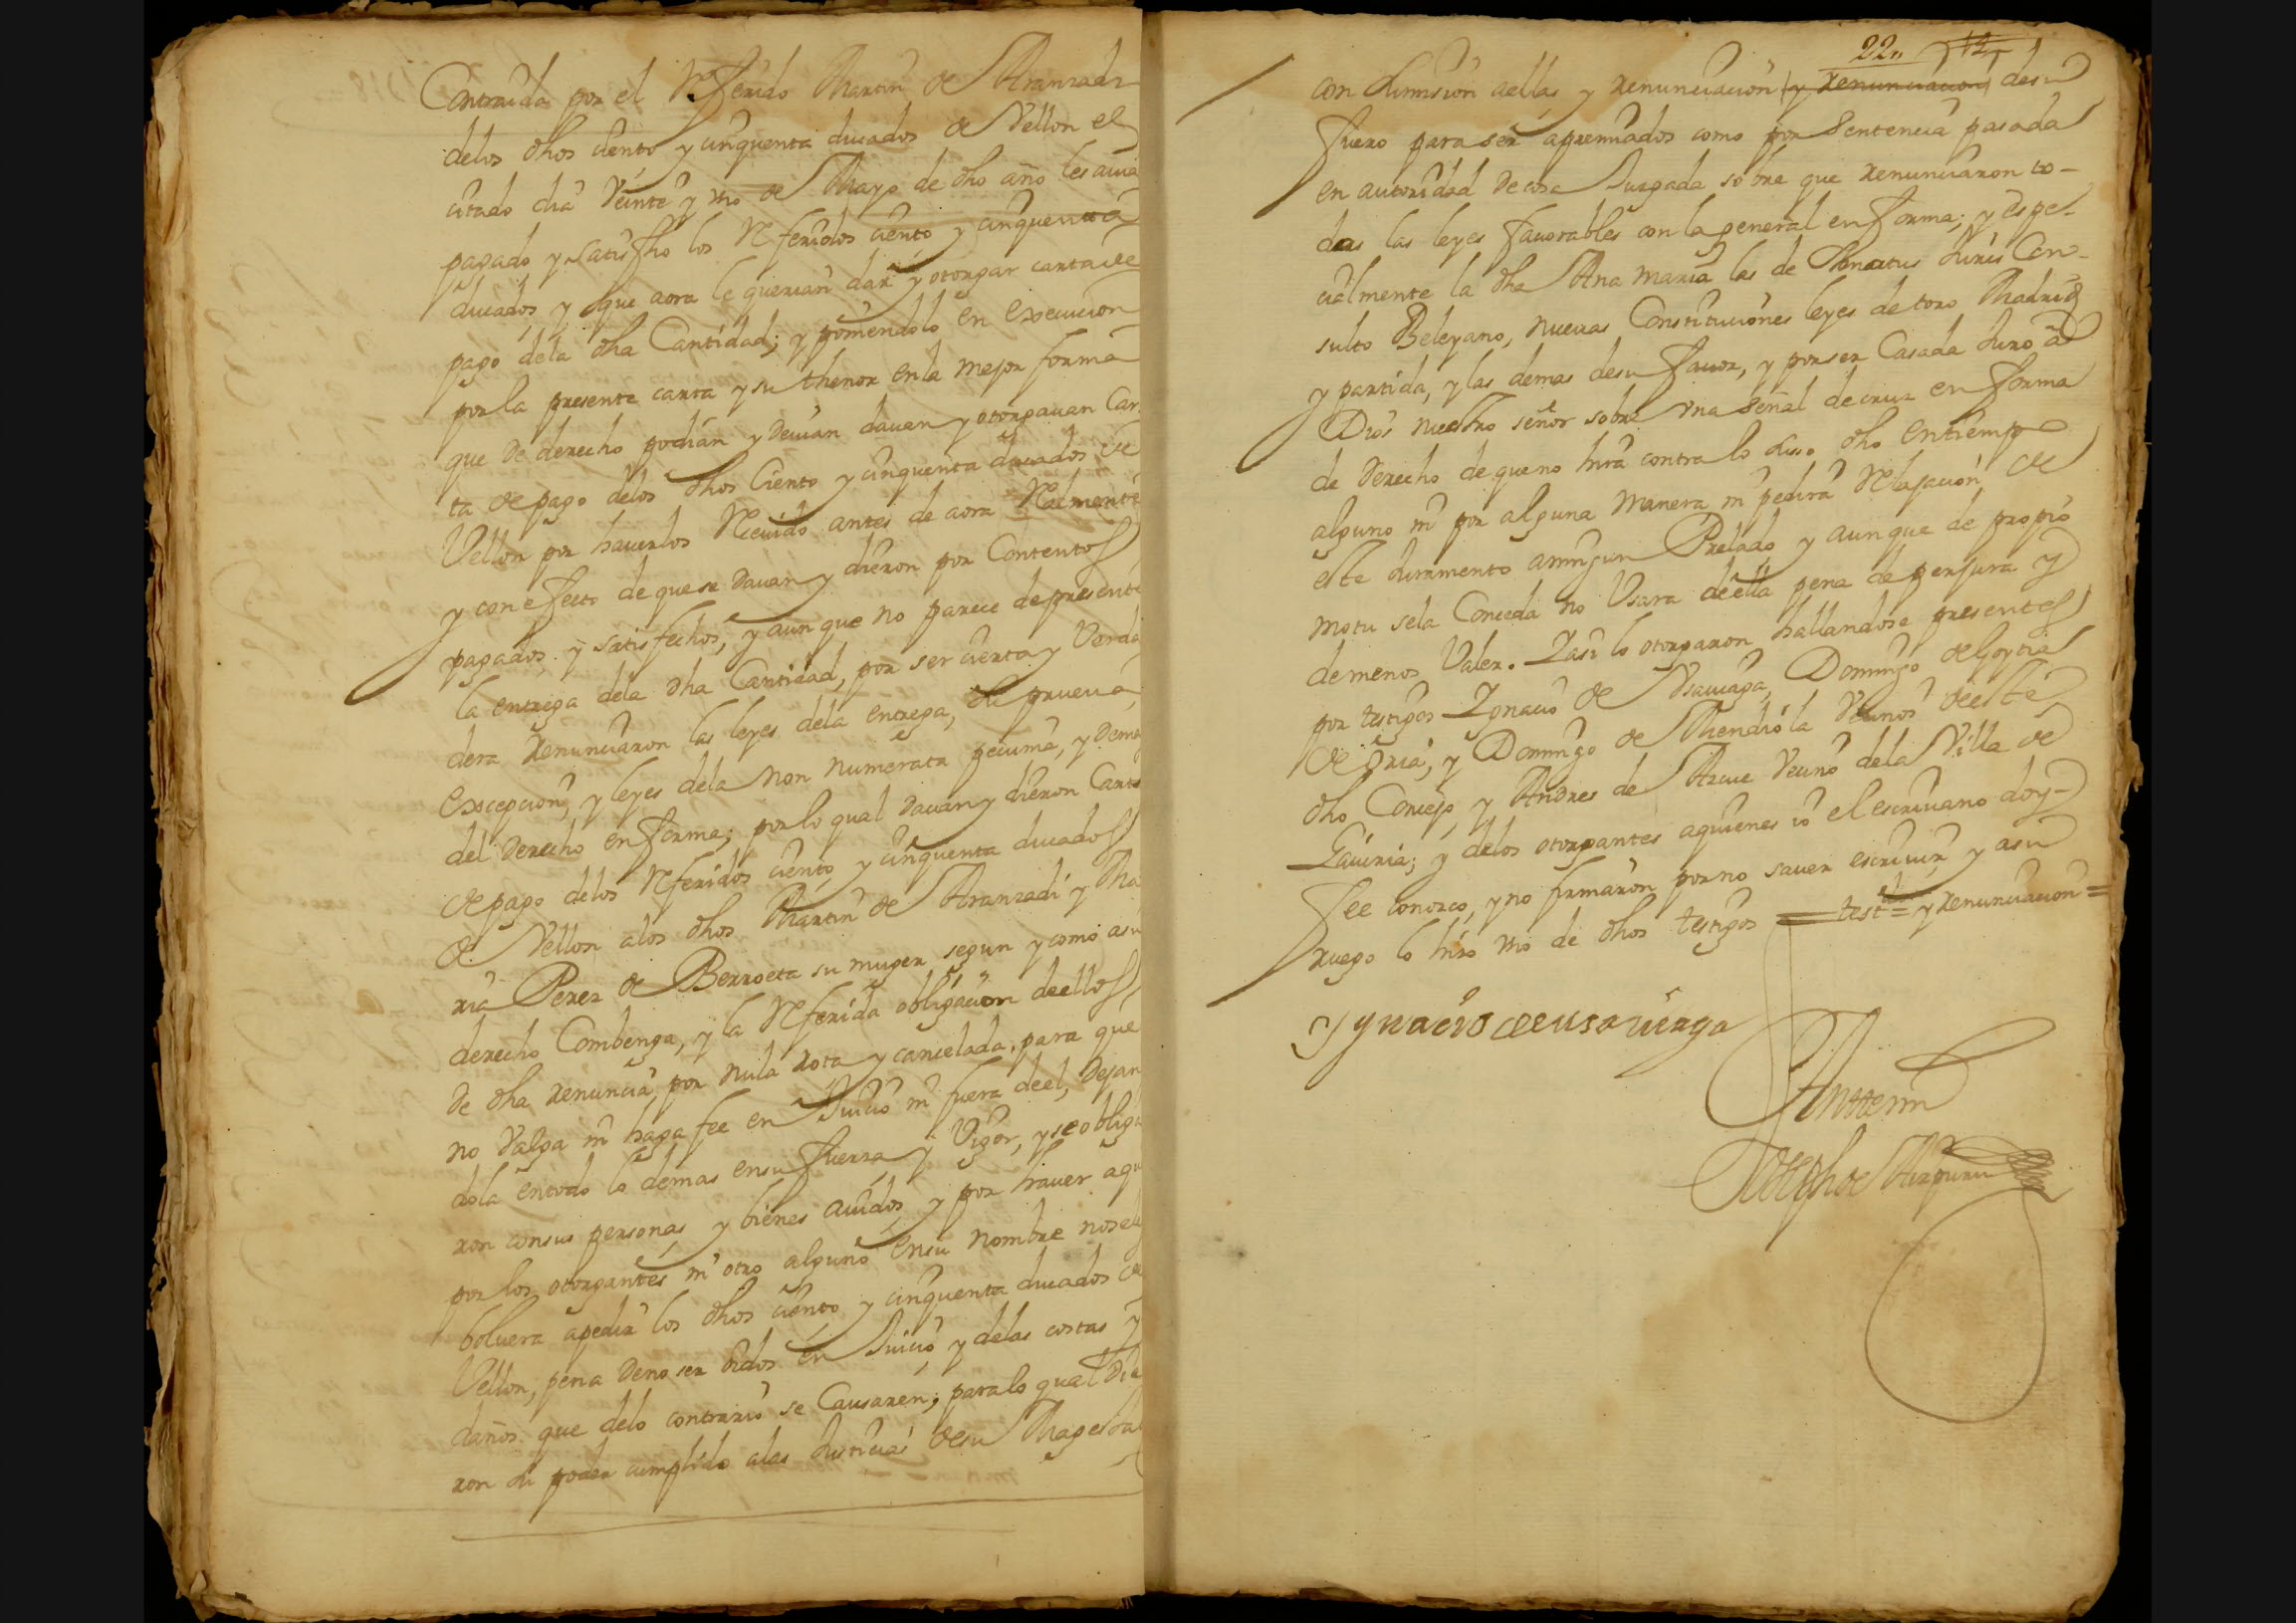 Contraida por el Referido Martin de Aranzadi
delos dhos ciento y cinquenta ducados de Vellon el
citado dia Veinte y vno de Mayo de dho año les auia
pagado, y satisfho los Referidos ciento y cinquenta
ducados, y que aora le querian dar y otorgar carta de
pago dela dha Cantidad; y poniendolo en execucion
por la presente carta y su thenor en la mejor forma
que de derecho podian y deuian dauan y otorgauan Car
ta de pago delos dhos Ciento y cinquenta ducados de
Vellon por hauerlos Receuido antes de aora Realmente
y con efecto de que se dauan y dieron por Contentos
pagados, y satisfechos, y aunque no parece de presente
la entrega dela dha Cantidad, por ser cierta y Verda
dera Renunciaron las leyes dela entrega, su prueua,
excepcion, y leyes dela non numerata pecunia, y demas
del derecho en forma; por lo qual dauan y dieron Carta
de pago delos Referidos ciento y cinquenta ducados
de Vellon alos dhos Martin de Aranzadi y Ma
ria Perez de Berroeta su muger segun y como asu
derecho Combenga, y la Referida obligacion de ellos,
de dha renuncia, por nula rota y cancelada, para que
no Valga ni haga fee en Juicio ni fuera de el, dejan
dola entodo lo demas ensu fuerza y Vigor, y se obliga
ron consus personas y bienes auidos y por hauer aqu
por los otorgantes ni otro alguno ensu nombre nosele
boluera apedir los dhos ciento y cinquenta ducados de
Vellon, pena de no ser oidos en Juicio, y delas costas y
daños que delo contrario se Causaren; para lo qual die
ron su poder cumplido alas Justicias de su Magestad
22,,
con sumision aellas, y renunciacion y renunciacion desu
fuero para ser apremiados como por Sentencia pasada
en autoridad de cosa Juzgada sobre que renunciaron to-
das las leyes fauorables con la general en forma; y espe-
cialmente la dha Ana Maria las de Senatus Juris Con-
sulto Beleyano, nueuas Constituciones leyes de toro Madrid
y partida, y las demas desu fauor, y por ser Casada Juro a
Dios nuestro señor sobre vna señal de cruz en forma
de derecho de que no hira contra lo suso dho en tiempo
alguno ni por alguna manera ni pedira Relajacion de
este Juramento aningun Prelado, y aunque de propio
motu sela Conceda no Vsara de ella pena de perjura y
de menos Valer. Y asi lo otorgaron hallandose presentes
por testigos Ygnacio de Vsauiaga, Domingo de Goytia
de Oria, y Domingo de Mendiola Vecinos de este
dho Concejo, y Andres de Arcue Vecino dela Villa de
Gauiria; y delos otorgantes aquienes io el escriuano doy
fee conozco, y no firmaron por no sauer escriuir y asu
ruego lo hizo vno de dhos testigos = test.do = y renunciacion =
Ygnacio de usauiaga
Antemi
Joseph de Aizpuru